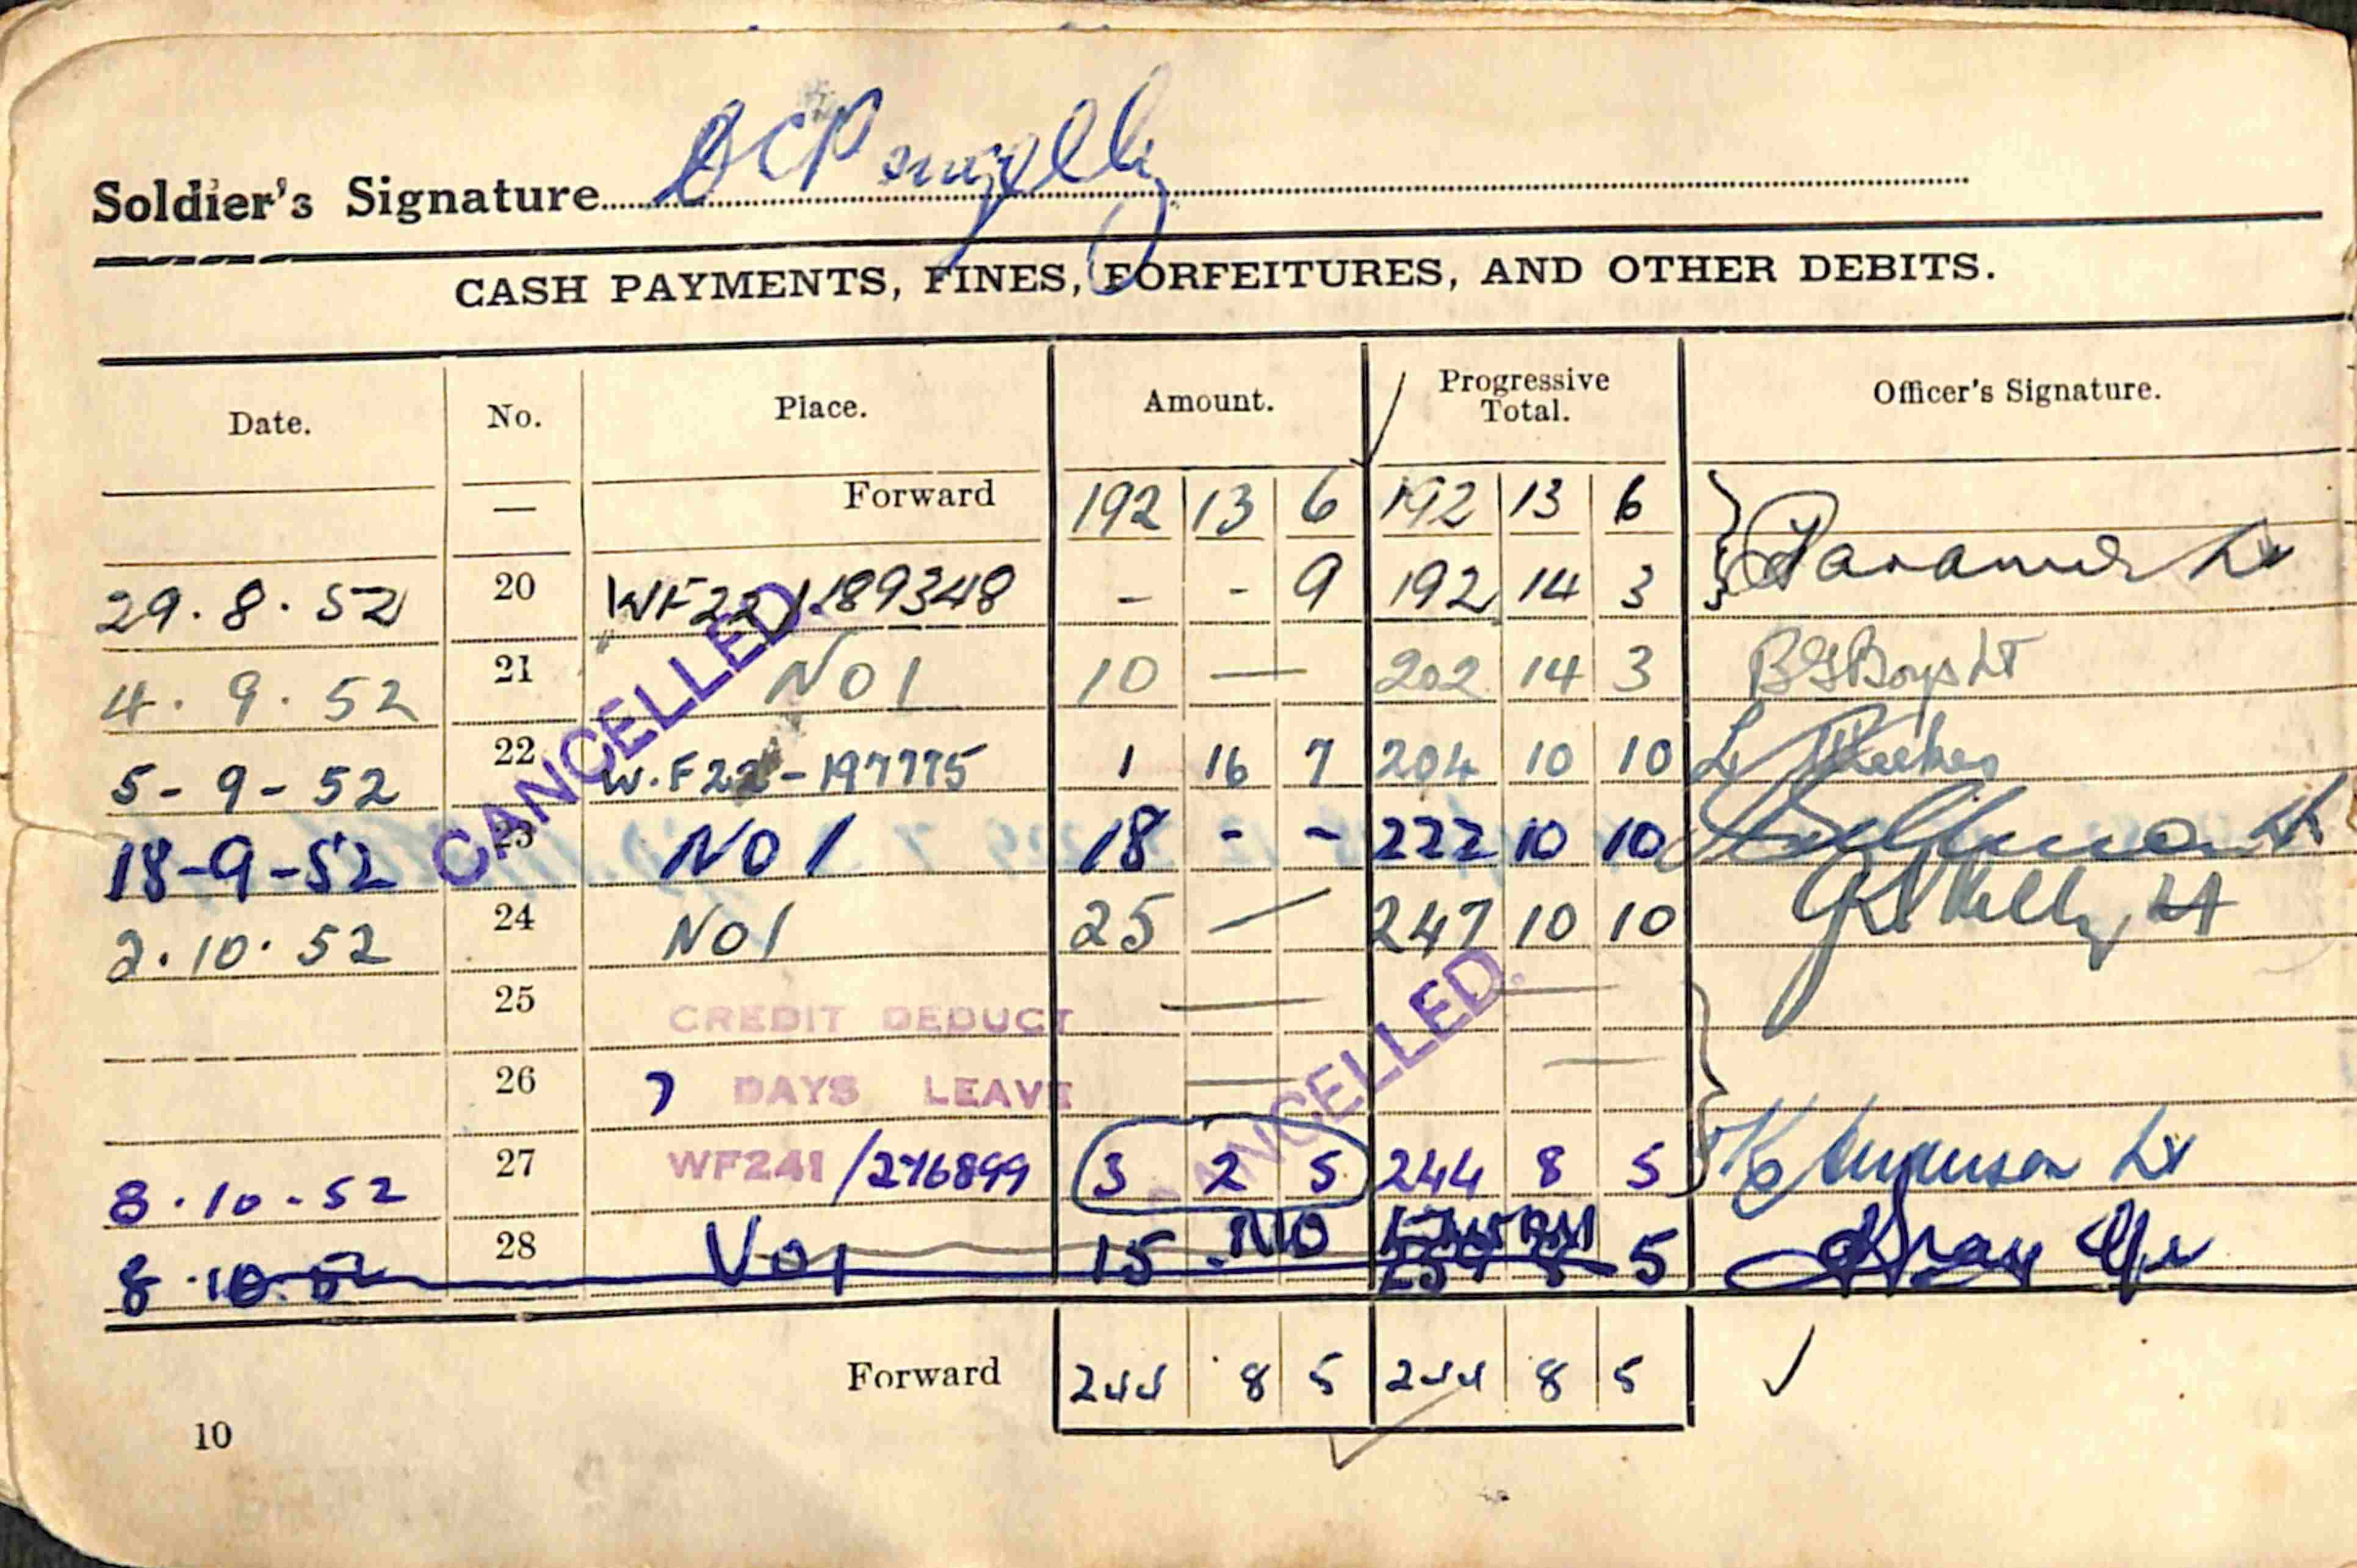 Soldier's Signature
CASH PAYMENTS, FINES, FORFEITURES, AND OTHER DEBITS.
Date. No. Place. Amount. Progressive Total. Officer's Signature.
— Forward 192 13 6 192 13 6
29.8.52 20 WF221.189348 - - 9 192 14 3 Lt
4.9.52 21 NO1 10 — 202 14 3 Lt
5-9-52 22 W.F22-197775 1 16 7 204 10 10
18-9-52 23 NO1 18 - - 222 10 10 Lt
2.10.52 24 NO1 25 — 247 10 10 Lt
25 CREDIT DEDUCT — —
26 7 DAYS LEAVE — —
8.10.52 27 WF241/276899 3 2 5 244 8 5 Lt
8.10.52 28 V01 15 - 5
Forward 244 8 5 244 8 5
10
CANCELLED.
CANCELLED.